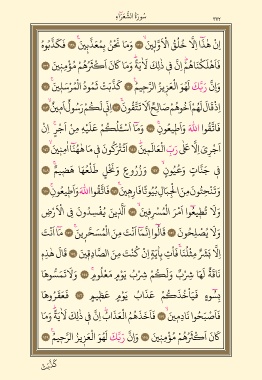 سُورَةُ الشُّعَرَاءِ
٣٧٢
اِنْ هٰذَٓا اِلَّا خُلُقُ الْاَوَّل۪ينَۙ وَمَا نَحْنُ بِمُعَذَّب۪ينَۚ فَكَذَّبُوهُ
فَاَهْلَكْنَاهُمْۜ اِنَّ ف۪ي ذٰلِكَ لَاٰيَةًۜ وَمَا كَانَ اَكْثَرُهُمْ مُؤْمِن۪ينَ
وَاِنَّ رَبَّكَ لَهُوَ الْعَز۪يزُ الرَّح۪يمُ۟ كَذَّبَتْ ثَمُودُ الْمُرْسَل۪ينَۚ
اِذْ قَالَ لَهُمْ اَخُوهُمْ صَالِحٌ اَلَا تَتَّقُونَۚ اِنّ۪ي لَكُمْ رَسُولٌ اَم۪ينٌۙ
فَاتَّقُوا اللّٰهَ وَاَط۪يعُونِۚ وَمَٓا اَسْـَٔلُكُمْ عَلَيْهِ مِنْ اَجْرٍۚ اِنْ
اَجْرِيَ اِلَّا عَلٰى رَبِّ الْعَالَم۪ينَۜ اَتُتْرَكُونَ ف۪ي مَا هٰهُنَٓا اٰمِن۪ينَۙ
ف۪ي جَنَّاتٍ وَعُيُونٍۙ وَزُرُوعٍ وَنَخْلٍ طَلْعُهَا هَض۪يمٌۚ
وَتَنْحِتُونَ مِنَ الْجِبَالِ بُيُوتًا فَارِه۪ينَۚ فَاتَّقُوا اللّٰهَ وَاَط۪يعُونِۚ
وَلَا تُط۪يعُٓوا اَمْرَ الْمُسْرِف۪ينَۙ اَلَّذ۪ينَ يُفْسِدُونَ فِي الْاَرْضِ
وَلَا يُصْلِحُونَ قَالُٓوا اِنَّمَٓا اَنْتَ مِنَ الْمُسَحَّر۪ينَۚ مَٓا اَنْتَ
اِلَّا بَشَرٌ مِثْلُنَاۚ فَأْتِ بِاٰيَةٍ اِنْ كُنْتَ مِنَ الصَّادِق۪ينَ قَالَ هٰذِه۪
نَاقَةٌ لَهَا شِرْبٌ وَلَكُمْ شِرْبُ يَوْمٍ مَعْلُومٍۚ وَلَا تَمَسُّوهَا
بِسُٓوءٍ فَيَأْخُذَكُمْ عَذَابُ يَوْمٍ عَظ۪يمٍ فَعَقَرُوهَا
فَاَصْبَحُوا نَادِم۪ينَۙ فَاَخَذَهُمُ الْعَذَابُۜ اِنَّ ف۪ي ذٰلِكَ لَاٰيَةًۜ وَمَا
كَانَ اَكْثَرُهُمْ مُؤْمِن۪ينَ وَاِنَّ رَبَّكَ لَهُوَ الْعَز۪يزُ الرَّح۪يمُ۟
كَذَّبَتْ